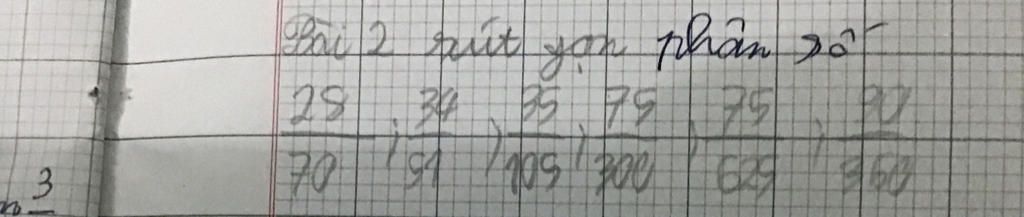 Bài 2 rút gọn phân số
28/70 ; 34/51 ; 35/105 ; 75/300 ; 75/625 ; 90/360
3